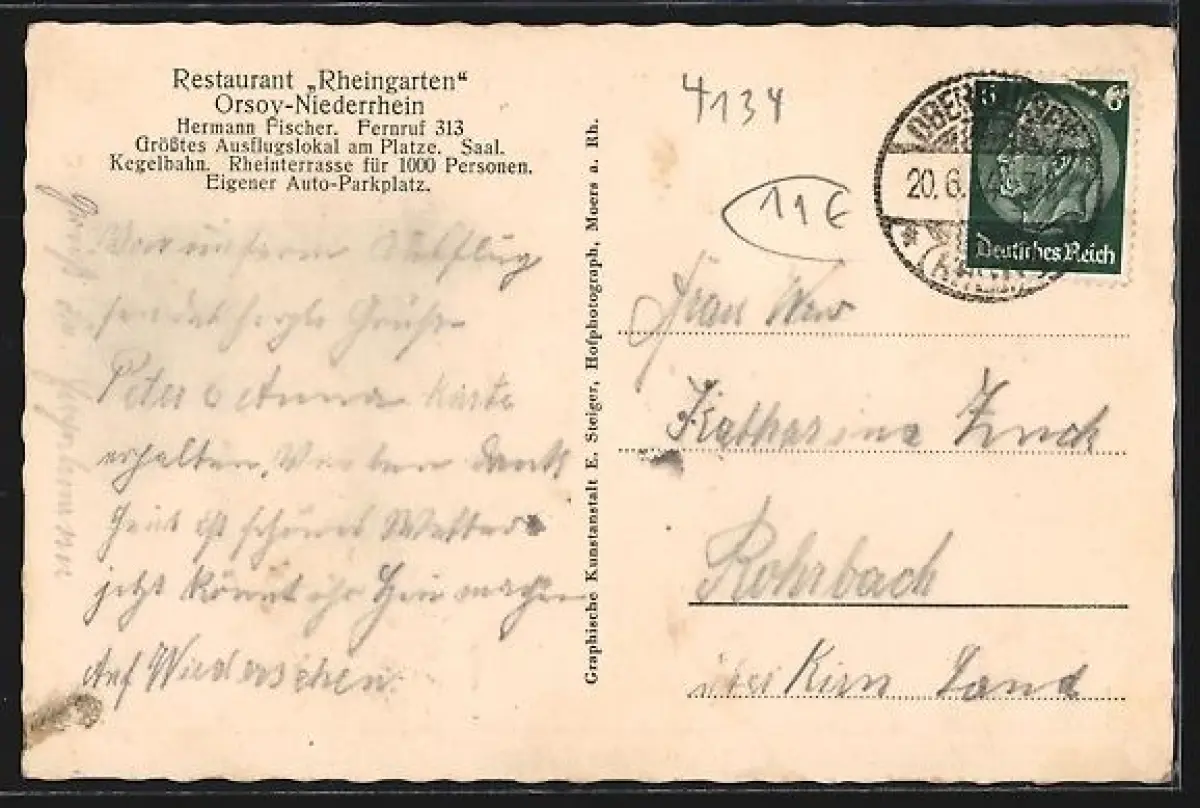 Restaurant „Rheingarten“
Orsoy-Niederrhein
Hermann Fischer. Fernruf 313
Größtes Ausflugslokal am Platze. Saal.
Kegelbahn. Rheinterrasse für 1000 Personen.
Eigener Auto-Parkplatz.
Von unserm Ausflug
sendet Grüße
Peter u Anna Karte
erhalten. Dank
ist schönes Wetter
jetzt könnt ihr Heu machen
Auf Wiedersehen.
Graphische Kunstanstalt E. Steiger, Hofphotograph, Moers a. Rh.
4134
11€
20. 6.
6 6
Deutsches Reich
Frau Wwe
Katharina
Rohrbach
Kirn Land